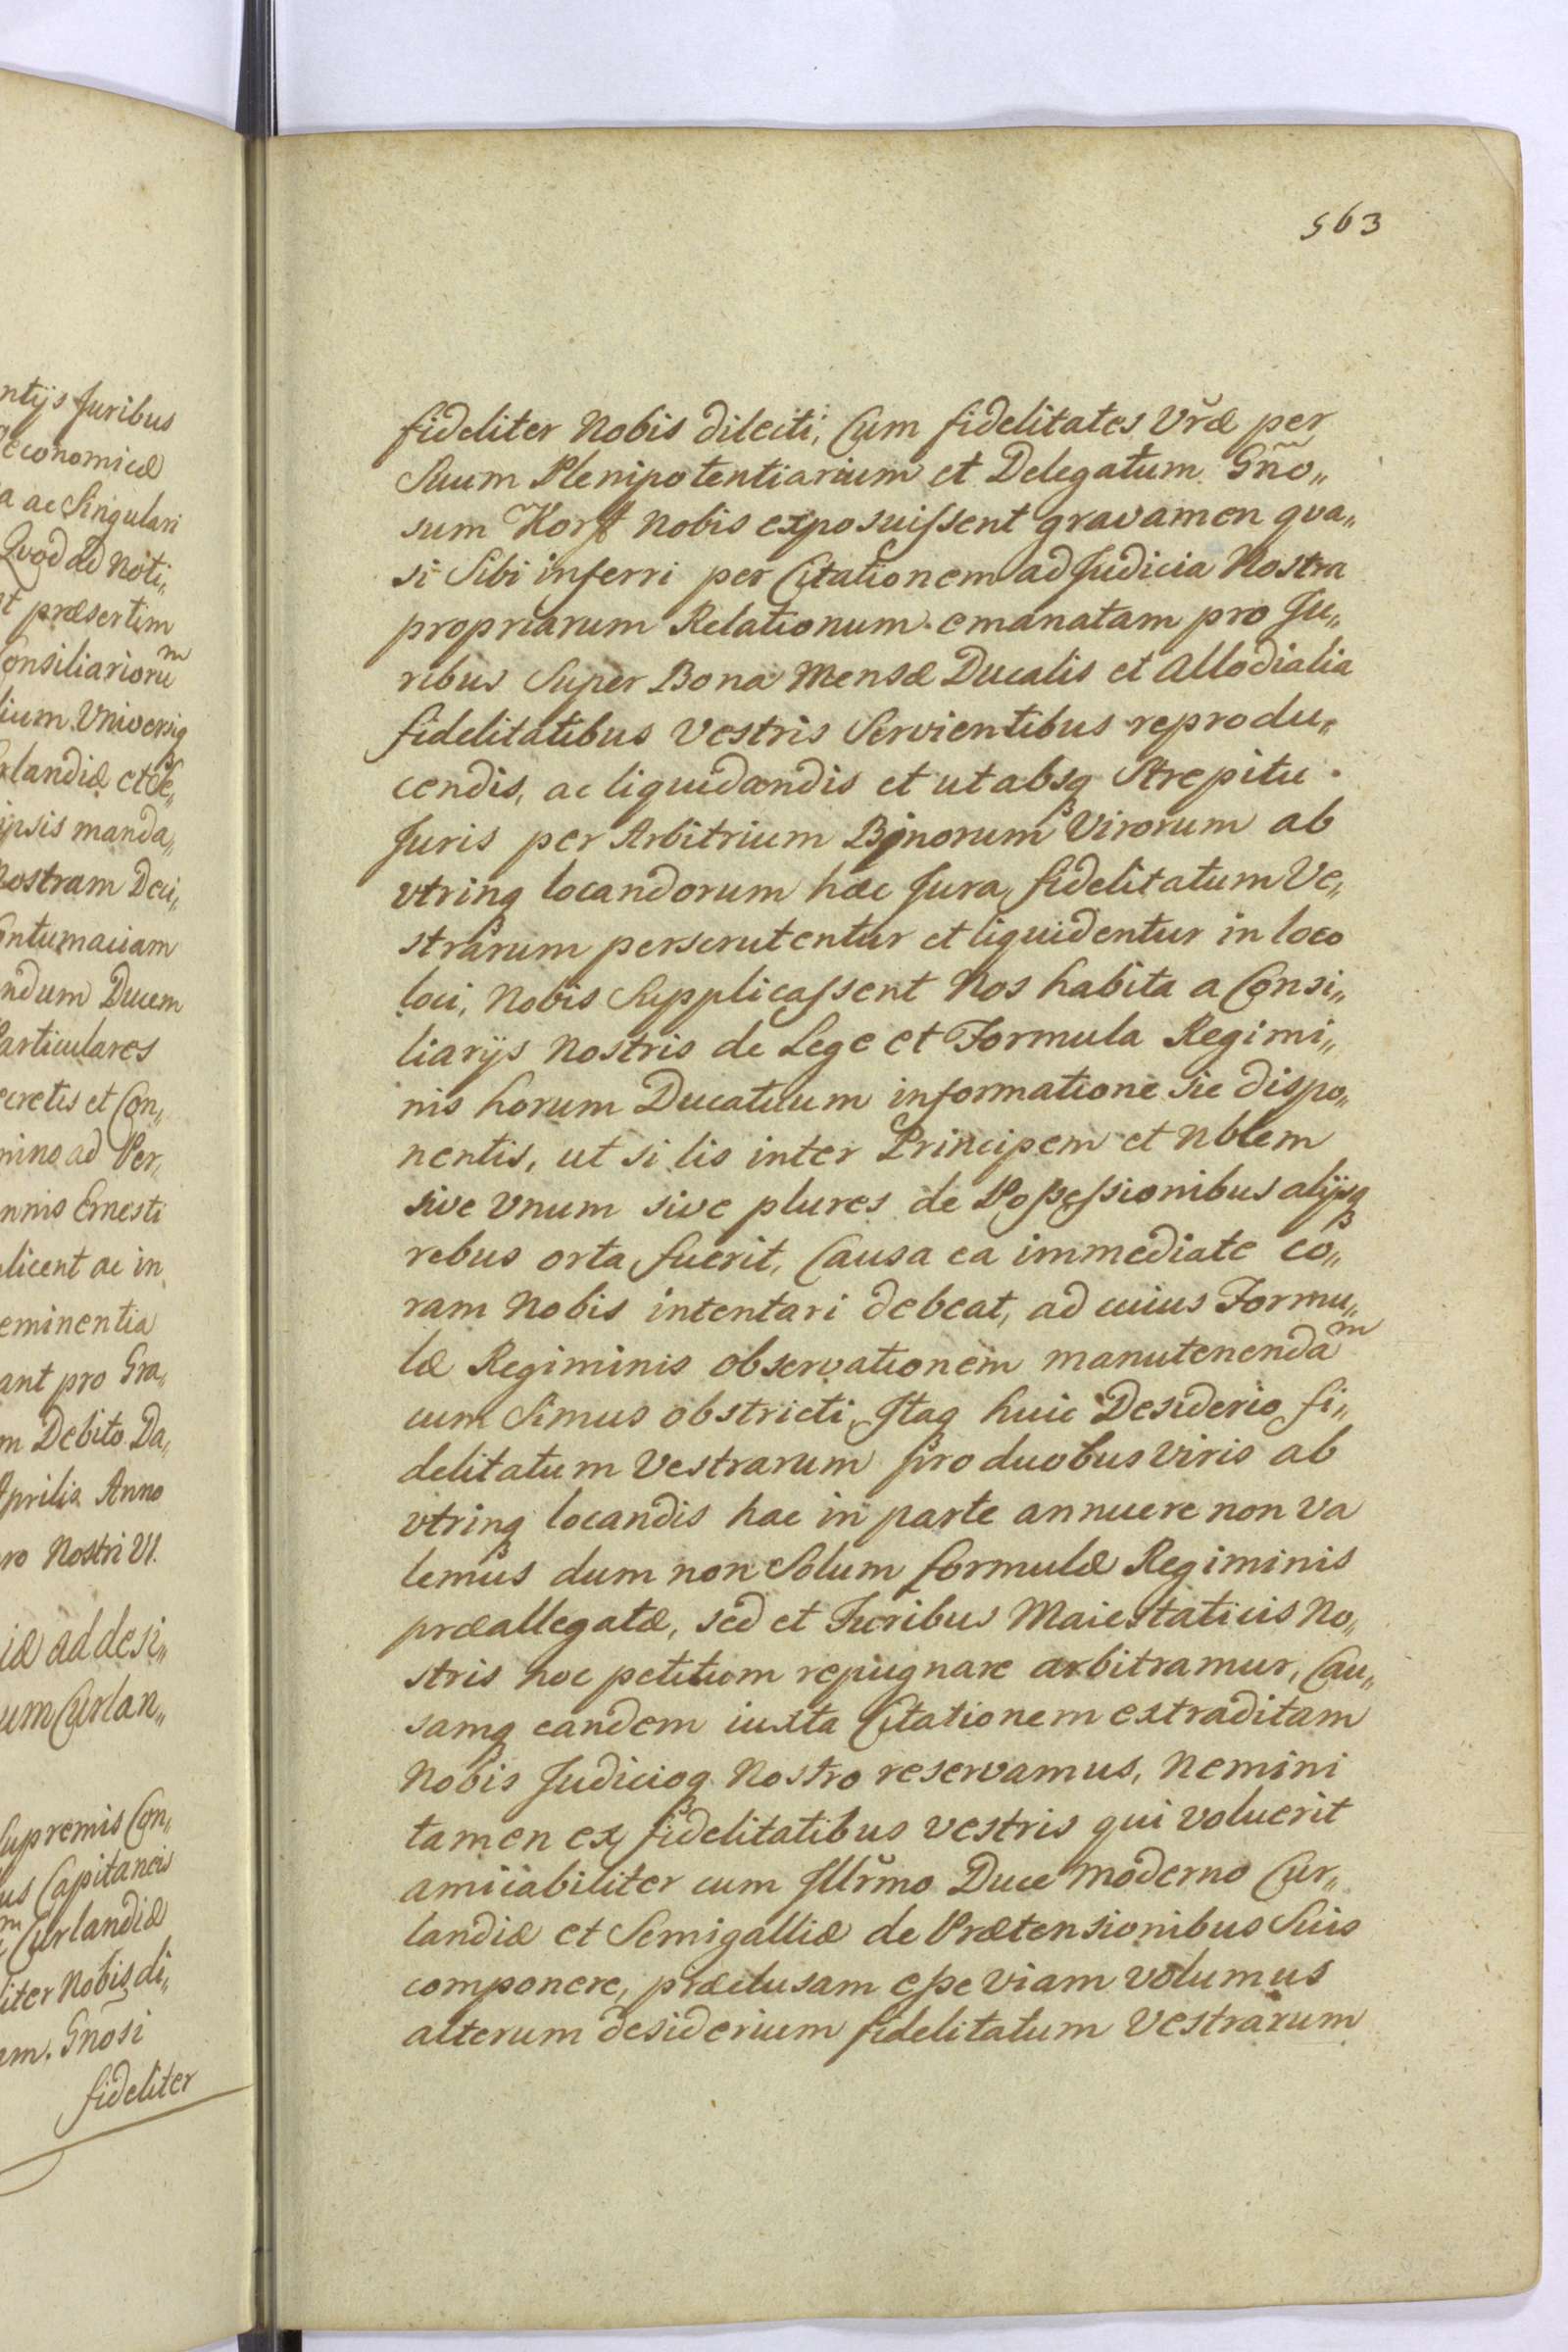 ntijs Juribus
economicæ
a ac Singulari
Quod ad noti„
t præsertim
onsiliarioru͞m
lium Universiq
rlandiæ et Se„
ipsis manda„
Nostram Deci„
ontumaciam
ndum Ducem
Particulares
ecretis et Con„
mino ad Per„
nnis Ernesti
licent ac in
eminentia
ant pro Gra„
m Debito Da„
Aprilis Anno
ro Nostri VI.
iæ ad desi„
um Curlan„
Supremis Con„
us Capitaneis
m Curlandiæ
liter Nobis di„
um. Gnosi
fideliter
563
fideliter Nobis dilecti, Cum fidelitates Vr̃æ per
Suum Plenipotentiarium et Delegatum Gño„
sum Korff nobis exposuissent gravamen qva„
si Sibi inferri per Citationem ad Judicia Nostra
propriarum Relationum emanatam pro Ju„
ribus Super Bona Mensæ Ducalis et Allodialia
fidelitatibus Vestris Servientibus reprodu„
cendis, ac liquidandis et ut absq Strepitu
Juris per Arbitrium Binorum Virorum ab
vtrinq locandorum hæc Jura fidelitatum Ve„
strarum perscrutentur et liquidentur in loco
loci, Nobis Supplicassent Nos habita a Consi„
liarijs Nostris de Lege et Formula Regimi„
nis horum Ducatuum informatione sic dispo„
nentis, ut si lis inter Principem et Nblem
sive Vnum sive plures de Possessionibus alijsq
rebus orta fuerit, Causa ea immediate co„
ram Nobis intentari debeat, ad cuius Formu„
læ Regiminis observationem manutenendam
cum Simus obstricti, Itaq huic Desiderio fi„
delitatum Vestrarum pro duobus viris ab
vtrinq locandis hac in parte annuere non va
lemus dum non Solum formulæ Regiminis
præallegatæ, sed et Juribus Maiestaticis No„
stris hoc petitum repugnare arbitramur, Cau„
samq eandem iuxta Citationem extraditam
Nobis Judicioq Nostro reservamus, Nemini
tamen ex fidelitatibus vestris qui voluerit
amicabiliter cum Illr̃mo Duce moderno Cur„
landiæ et Semigalliæ de Prætensionibus Suis
componere, præclusam esse viam volumus
alterum desiderium fidelitatum Vestrarum